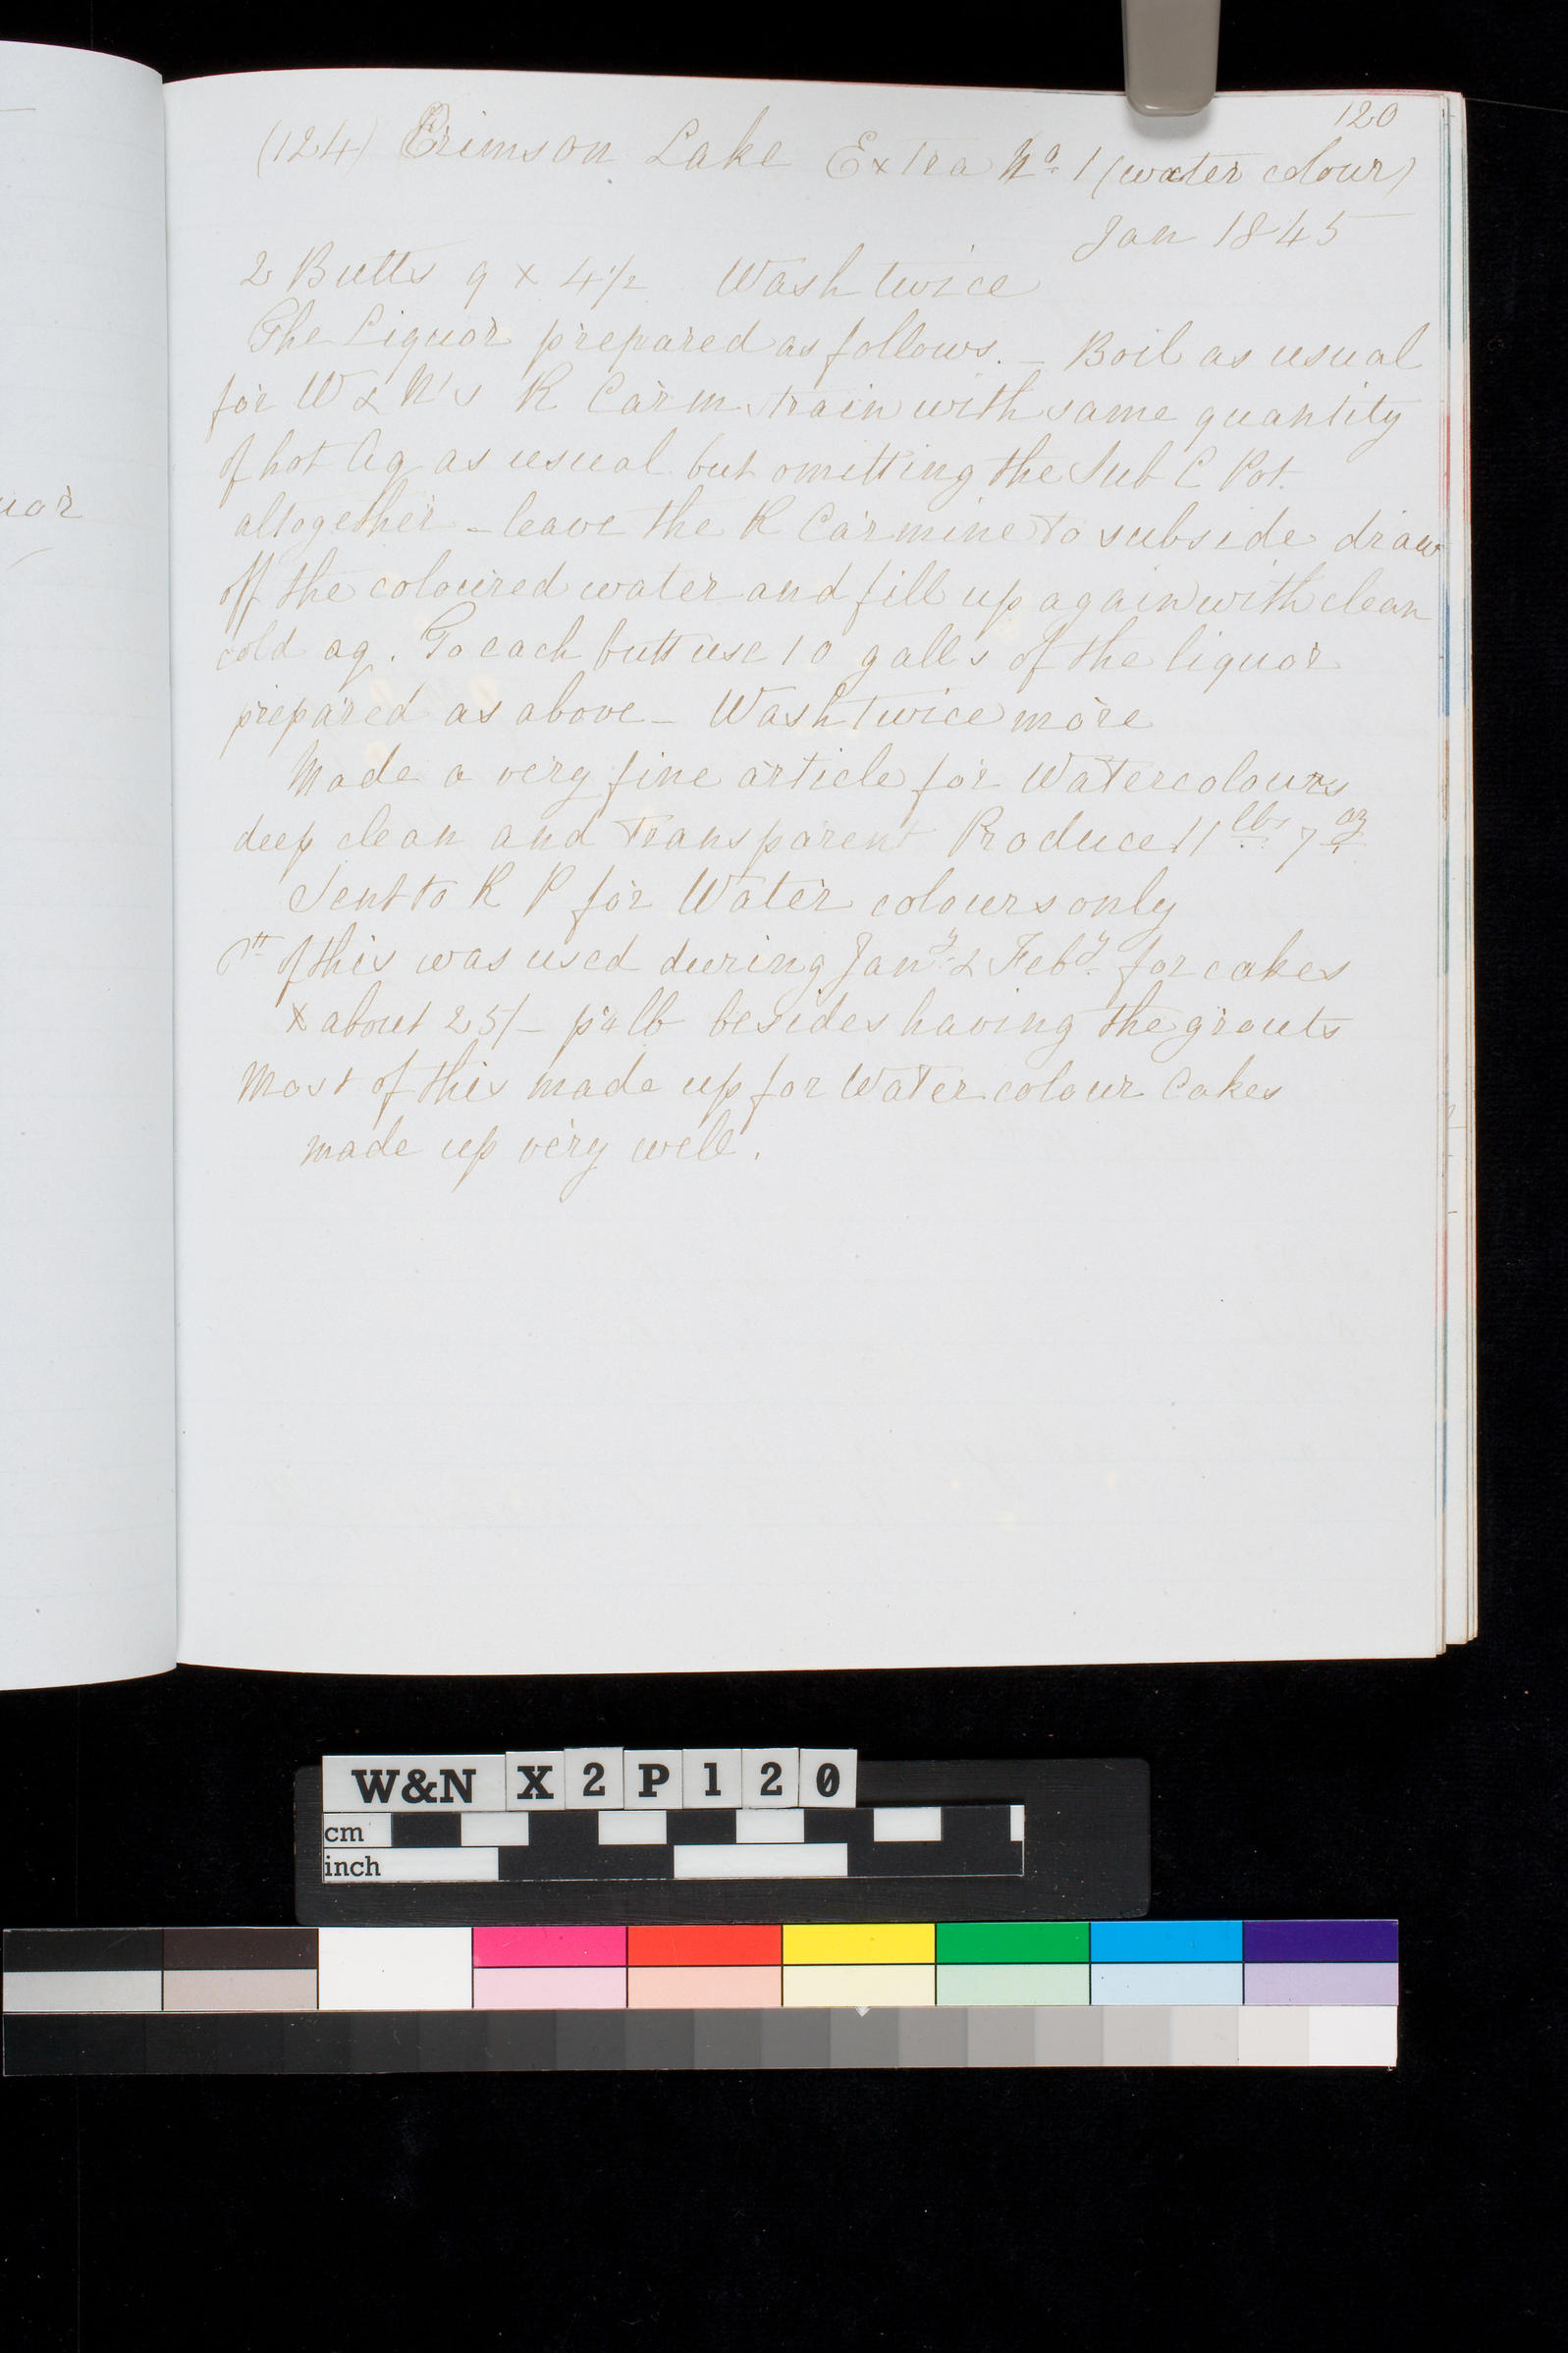 120
(124) Crimson Lake Extra No. 1 (water colour)
Jan 1845
2 Butts 9 x 4 1/2 Wash twice
The Liquor prepared as follows. – Boil as usual
for W & N's R Carm. strain with same quantity
of hot Aq as usual but omitting the Sub C Pot.
altogether – leave the R Carmine to subside draw
off the coloured water and fill up again with clean
cold aq. To each butt use 10 galls of the liquor
prepared as above – Wash twice more
Made a very fine article for Watercolours
deep clean and Transparent Produce 11 lbs 7 oz
Sent to R P for Water colours only
Pt of this was used during Jany & Feby for cakes
x about 25/– pr lb besides having the grouts
Most of this made up for Water colour Cakes
made up very well.
uor
W&N X2P120
cm
inch